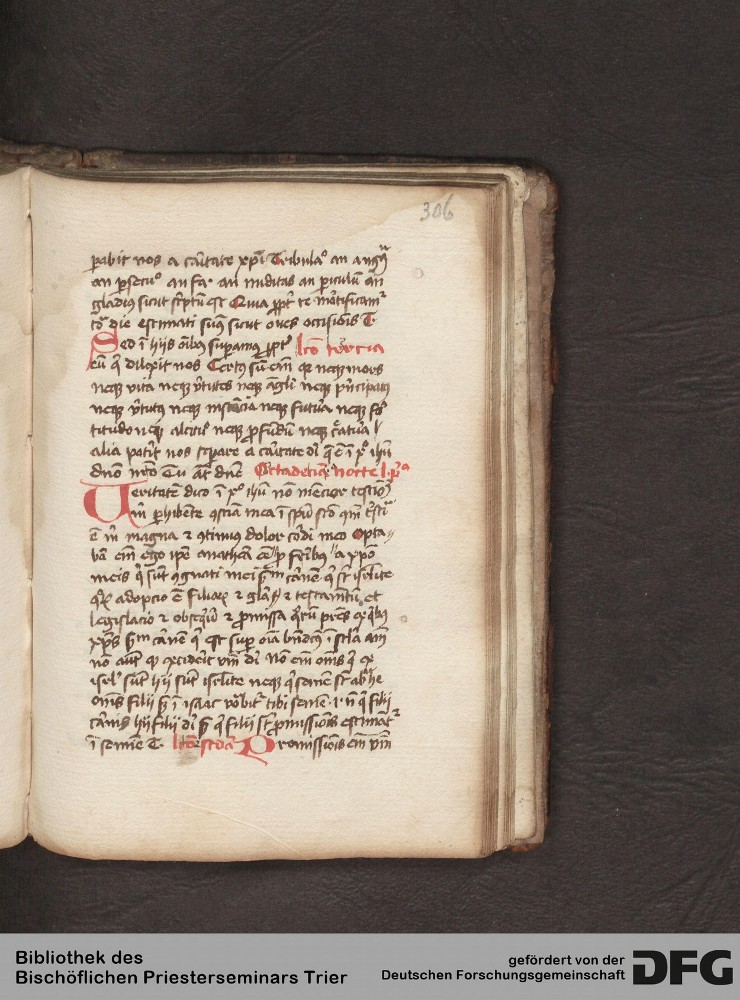 306
parabit nos a caritate xpi Tribulao an angu
an persecuo an fa. an nuditas an periculum an
gladius sicut scriptum est Quia propter te mortificamur
tota die estimati sumus sicut oves occisionis T.
Sed i hiis omnibus superamus propter lco tercia
eum qi dilexit nos Certus sum eim qr neq mors
neq vita neq virtutes neq angli neq principatus
neq virtutes neq instancia neq futura neq for
titudo neq altitus neq profundum neq creatura
alia poterit nos separare a caritate dei q e i xo ihu
dno nro
Veritatem dico i xo ihu non mencior testimoni
um perhibente conscientia mea i spu sco qm tristicia
e m magna et continuus dolor cordi meo Opta
bam eim ego ipe anathema ee pro fribus a xpo
meis qi sunt cognati mei secundum carnem qi sunt israelite
quorum adopcio e filiorum et gloria et testamentum et
legislacio et obsequium et promissa quorum patres ex quibus
xps secundum carnem qi est super omia bndictus i scla amen
non autem qd exciderit verbum dei Non eim omes qi ex
isrl sunt hii sunt israelite neq qi semen sunt abrahe
omes filii sed i isaac vocabitur tibi semen .i. non qi filii
carnis hii filii dei sed qi filii sunt promissionis estimantur
i semine T. lco scda Promissionis eim verbum
Bibliothek des
Bischöflichen Priesterseminars Trier
gefördert von der
Deutschen Forschungsgemeinschaft
DFG